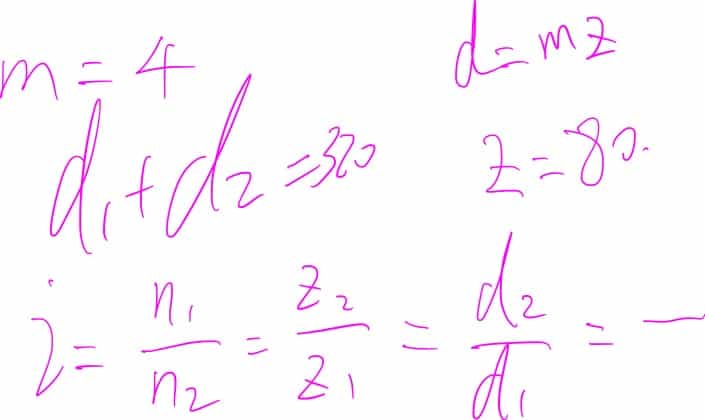 m = 4
d = mz
d₁ + d₂ = 320
z = 80.
i = n₁/n₂ = z₂/z₁ = d₂/d₁ = —